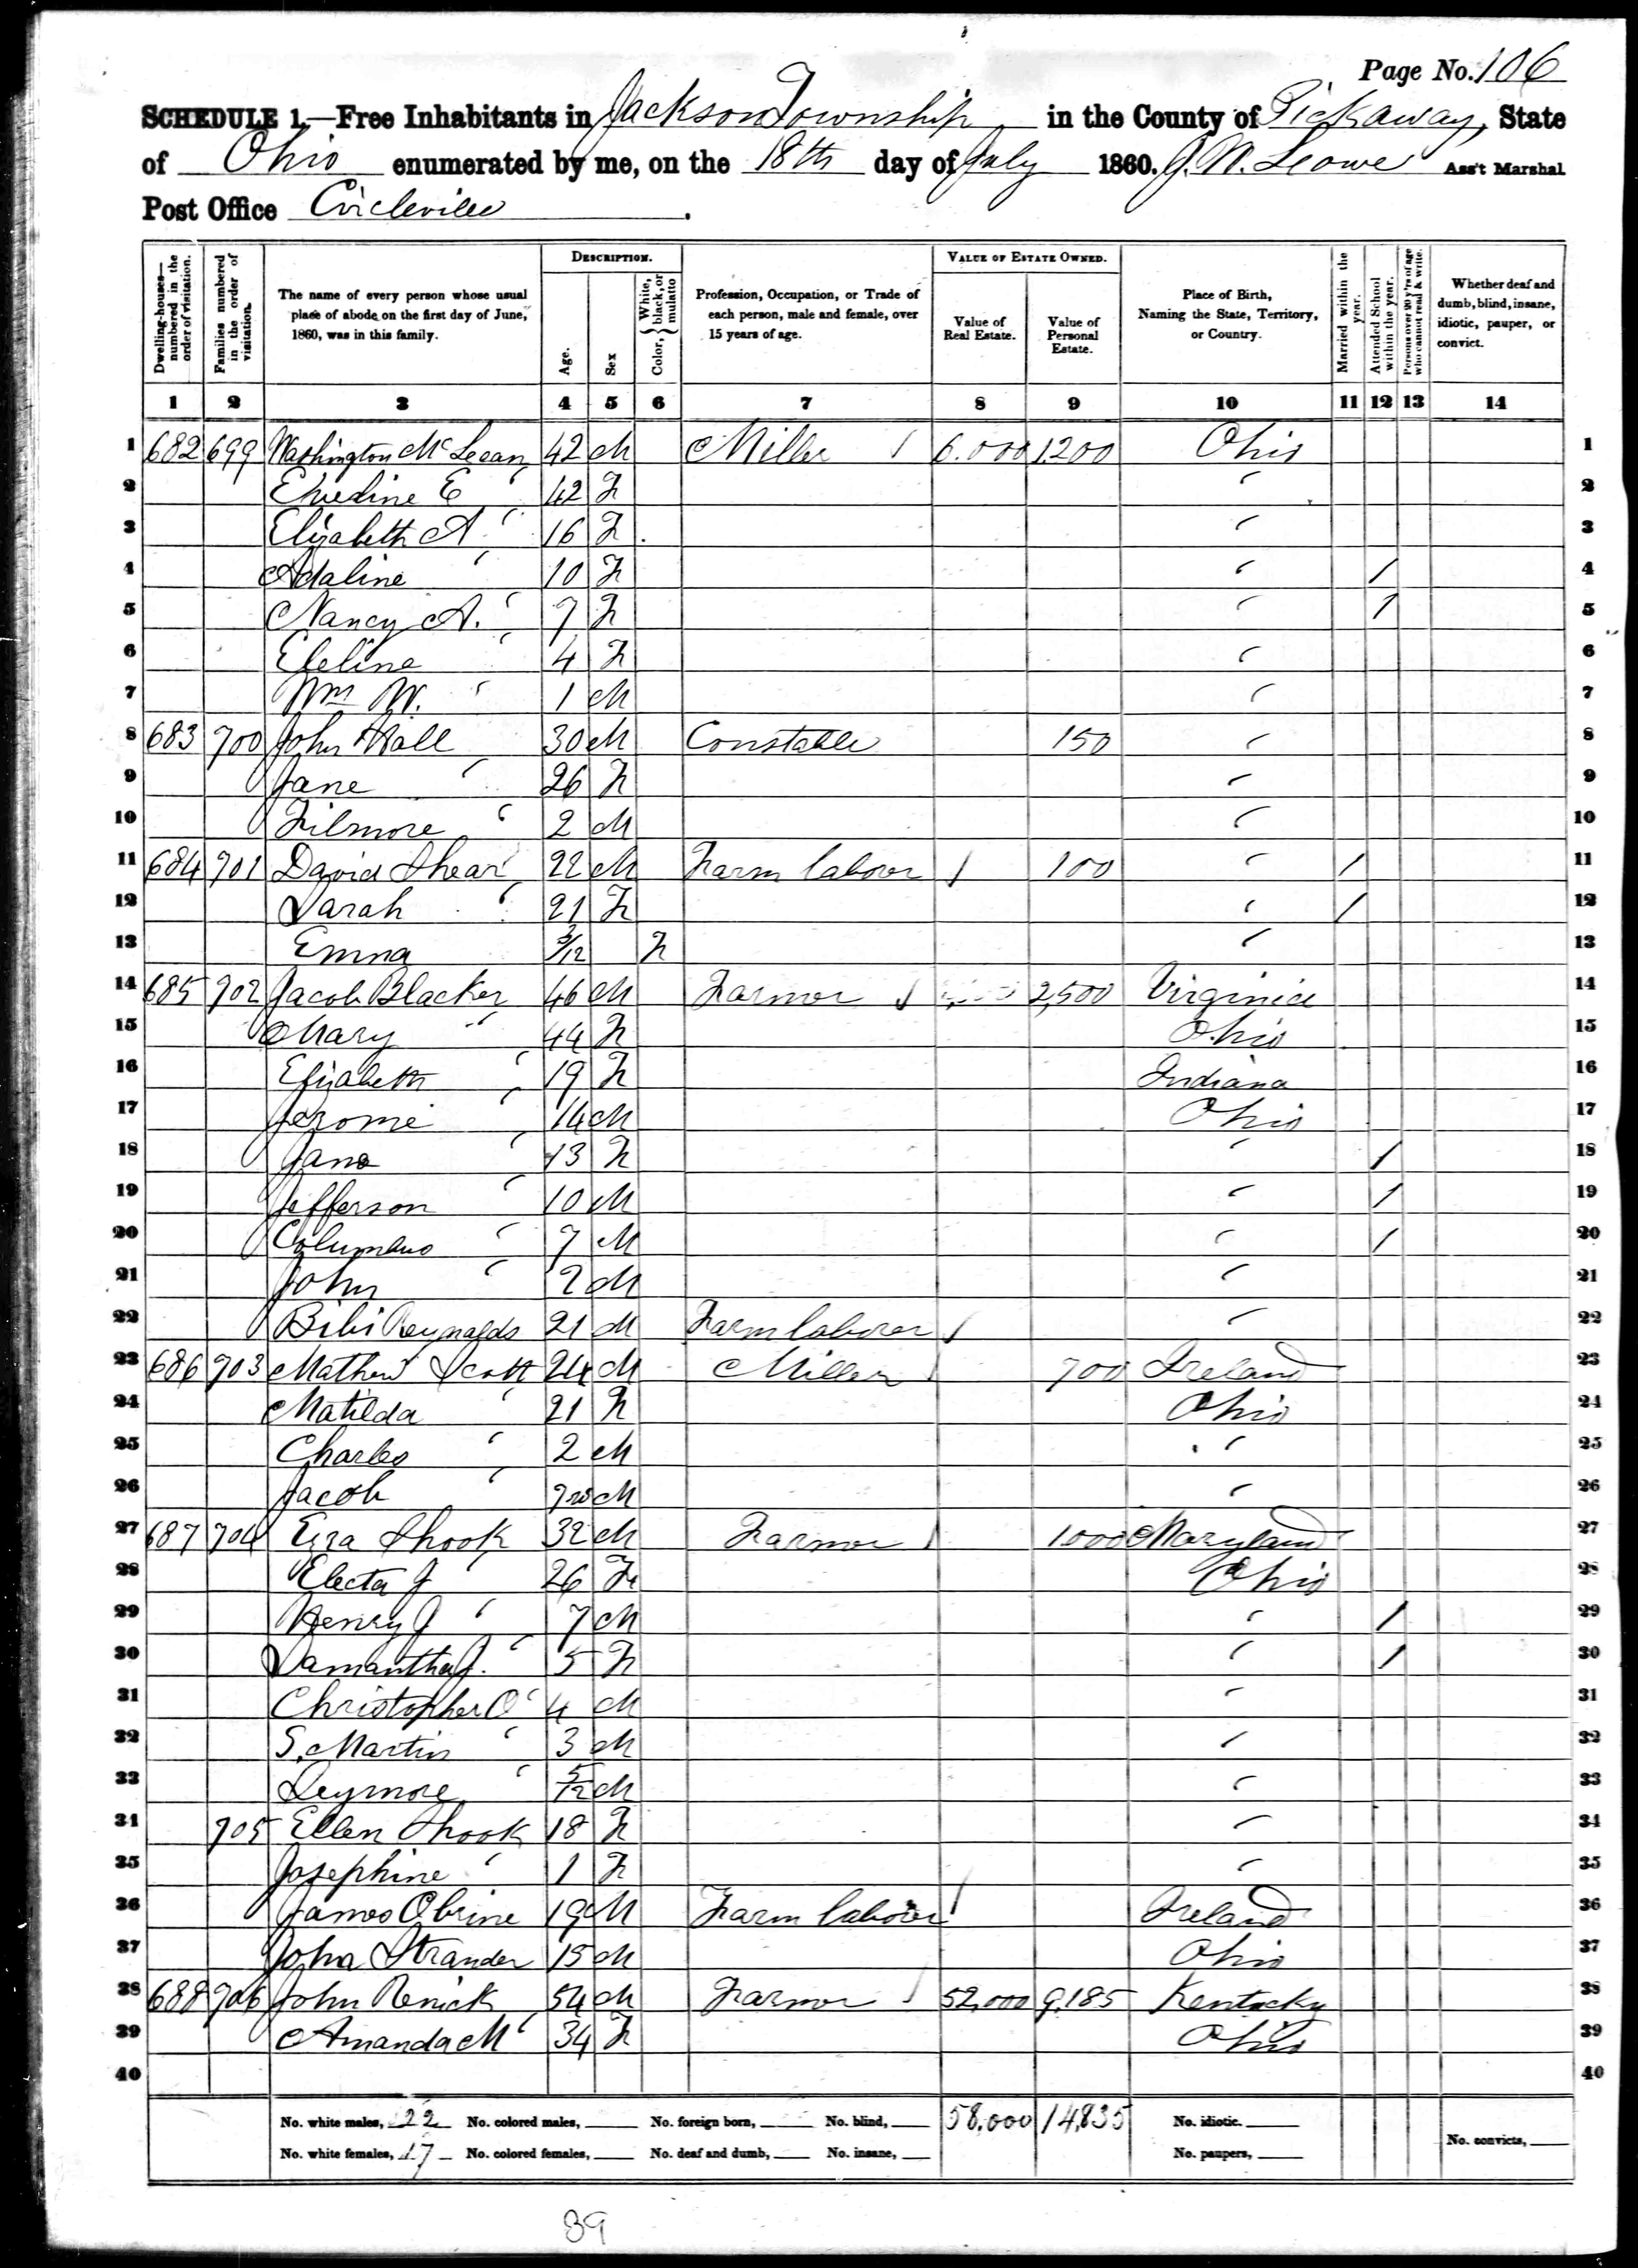 Page No. 106
SCHEDULE 1.—Free Inhabitants in Jackson Township in the County of Pickaway, State
of Ohio enumerated by me, on the 18th day of July 1860. Ass't Marshal
Post Office Circleville.
Dwelling-houses—numbered in the order of visitation.
Families numbered in the order of visitation.
The name of every person whose usual place of abode on the first day of June, 1860, was in this family.
DESCRIPTION.
Age.
Sex
Color, { White, black, or mulatto
Profession, Occupation, or Trade of each person, male and female, over 15 years of age.
VALUE OF ESTATE OWNED.
Value of Real Estate.
Value of Personal Estate.
Place of Birth, Naming the State, Territory, or Country.
Married within the year.
Attended School within the year.
Persons over 20 y'rs of age who cannot read & write.
Whether deaf and dumb, blind, insane, idiotic, pauper, or convict.
1 2 3 4 5 6 7 8 9 10 11 12 13 14
1 682 699 Washington McLean 42 M Miller / 6.000 1200 Ohio 1
2 E " 42 F " 2
3 Elizabeth A " 16 F " 3
4 Adaline " 10 F " / 4
5 Nancy A. " 7 F " / 5
6 " 4 F " 6
7 Wm W. " 1 M " 7
8 683 700 John Hall 30 M Constable 150 " 8
9 Jane " 26 F " 9
10 Filmore " 2 M " 10
11 684 701 David Shear 22 M Farm labour / 100 " / 11
12 Sarah " 21 F " / 12
13 Emma 3/12 F " 13
14 685 702 Jacob Blacker 46 M Farmer / 2,500 Virginia 14
15 Mary " 44 F Ohio 15
16 Elizabeth " 19 F Indiana 16
17 Jerome " 14 M Ohio 17
18 Jane " 13 F " / 18
19 Jefferson " 10 M " / 19
20 Columbus " 7 M " / 20
21 John " 2 M " 21
22 Reynalds 21 M Farm laborer / " 22
23 686 703 Mathew Scott 24 M Miller / 700 Ireland 23
24 Matilda " 21 F Ohio 24
25 Charles " 2 M " 25
26 Jacob " M " 26
27 687 704 Ezra Shook 32 M Farmer / 1000 Maryland 27
28 Electa J " 26 F Ohio 28
29 Henry J " 7 M " / 29
30 Samantha J. " 5 F " / 30
31 Christopher O " 4 M " 31
32 S. Martin " 3 M " 32
33 Seymore " 5/12 M " 33
34 705 Ellen Shook 18 F " 34
35 Josephine " 1 F " 35
36 James Obrine 19 M Farm laborer / Ireland 36
37 John Strander 15 M Ohio 37
38 688 706 John Renick 54 M Farmer / 52,000 9,185 Kentucky 38
39 Amanda M " 34 F Ohio 39
40 40
No. white males, 22 No. colored males, No. foreign born, No. blind, 58.000 14,835 No. idiotic.
No. white females, 17 No. colored females, No. deaf and dumb, No. insane, No. paupers, No. convicts,
39